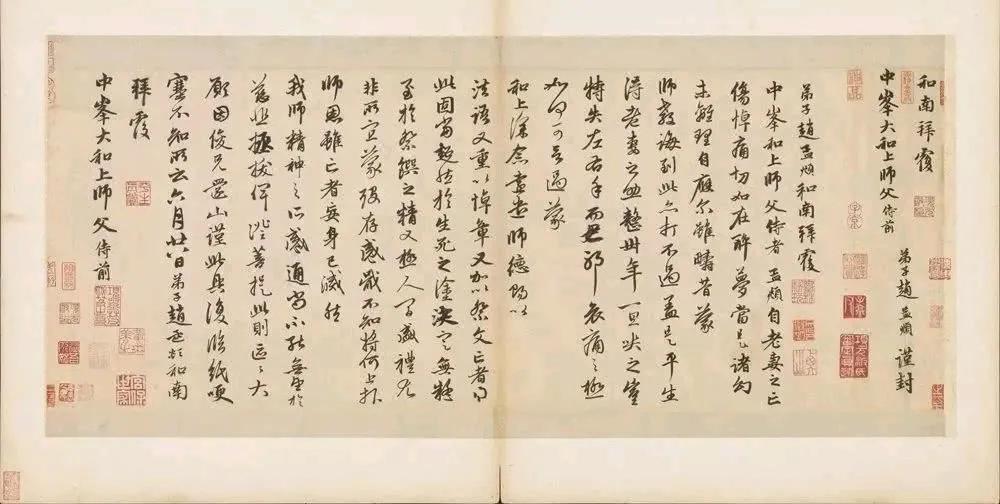 和南拜覆
中峯大和上師父侍前
弟子趙孟頫謹封
弟子趙孟頫和南拜覆
中峯和上師父侍者孟頫自老妻之亡
傷悼痛切如在醉夢當是諸幻
未離理自應爾雖疇昔蒙
師教誨到此亦打不過蓋是平生
得老妻之助整卅年一旦哭之豈
特失左右手而已耶哀痛之極
如何可言過蒙
和上深念遠遣師德賜以
法語又重以悼章又加以祭文亡者得
此固當超然於生死之塗決定無疑
至於祭饌之精又極人間盛禮尤
非所宜蒙歿存感戴不知將何上報
師恩雖亡者妄身已滅然
我師精神之所感通尚不能無望於
慈悲拯拔俾證菩提此則區區大
願因俊兄還山謹此具復臨紙哽
塞不知所云六月廿八日弟子趙孟頫和南
拜覆
中峯大和上師父侍前